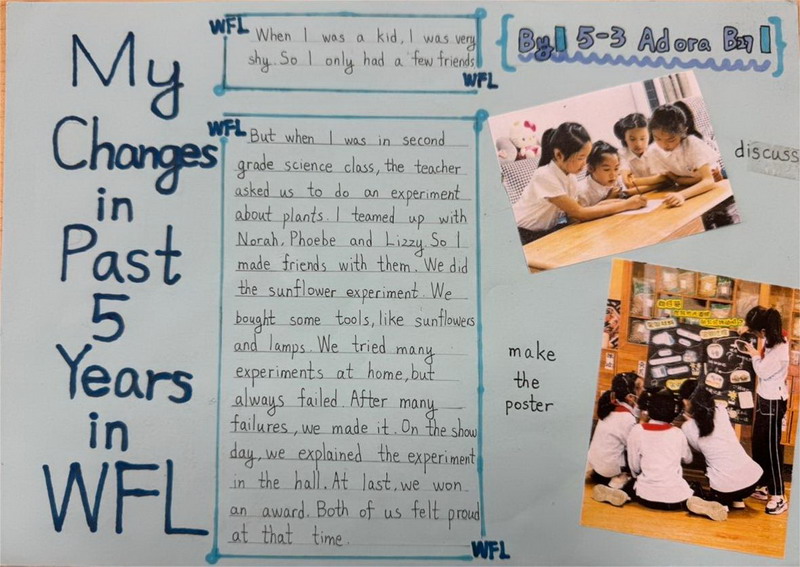 My
Changes
in
Past
5
Years
in
WFL
WFL
When I was a kid, I was very
shy. So I only had a few friends
WFL
WFL
But when I was in second
grade science class, the teacher
asked us to do an experiment
about plants. I teamed up with
Norah, Phoebe and Lizzy. So I
made friends with them. We did
the sunflower experiment. We
bought some tools, like sunflowers
and lamps. We tried many
experiments at home, but
always failed. After many
failures, we made it. On the show
day, we explained the experiment
in the hall. At last, we won
an award. Both of us felt proud
at that time.
WFL
By 5-3 Adora B27
discuss
make
the
poster